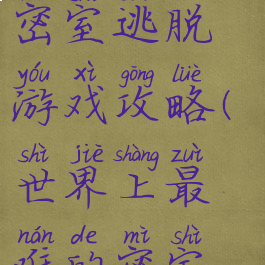 密室逃脱
yóu xì gōng lüè
游戏攻略(
shì jiè shàng zuì
世界上最
nán de mì shì
难的密室